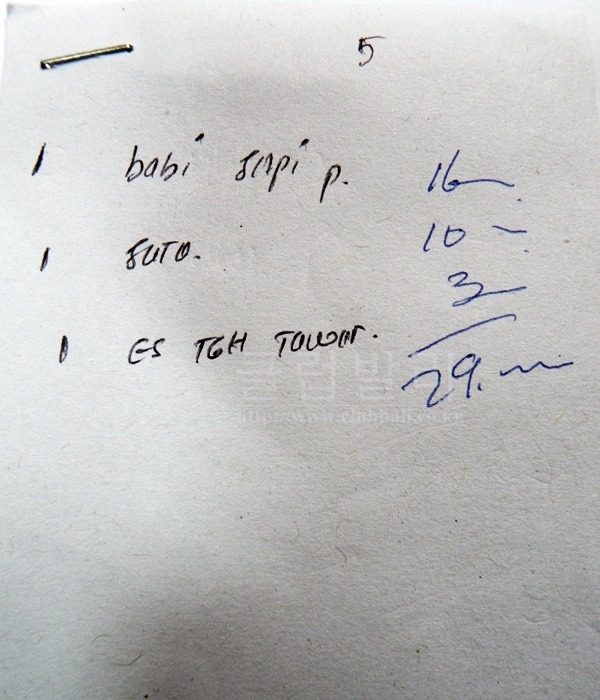 5
1 babi sapi p. 16
1 soto. 10
3
1 ES TGH Tawar.
29.
클럽발리
http://www.clubbali.co.kr